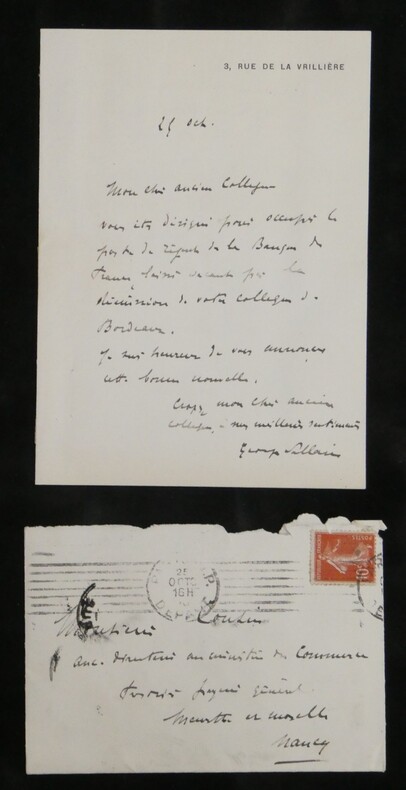 3, RUE DE LA VRILLIÈRE
25 Oct.
Mon cher ancien Collègue
vous êtes désigné pour occuper le
poste de régent de la Banque de
France laissé vacant par la
démission de votre collègue de
Bordeaux.
Je suis heureux de vous annoncer
cette bonne nouvelle.
Croyez mon cher ancien
collègue, à mes meilleurs sentiments
Georges Pallain
25
OCTO
16H
DEPART
POSTES
10c
Monsieur
anc. directeur au ministère du Commerce
trésorier payeur général
Meurthe et moselle
Nancy